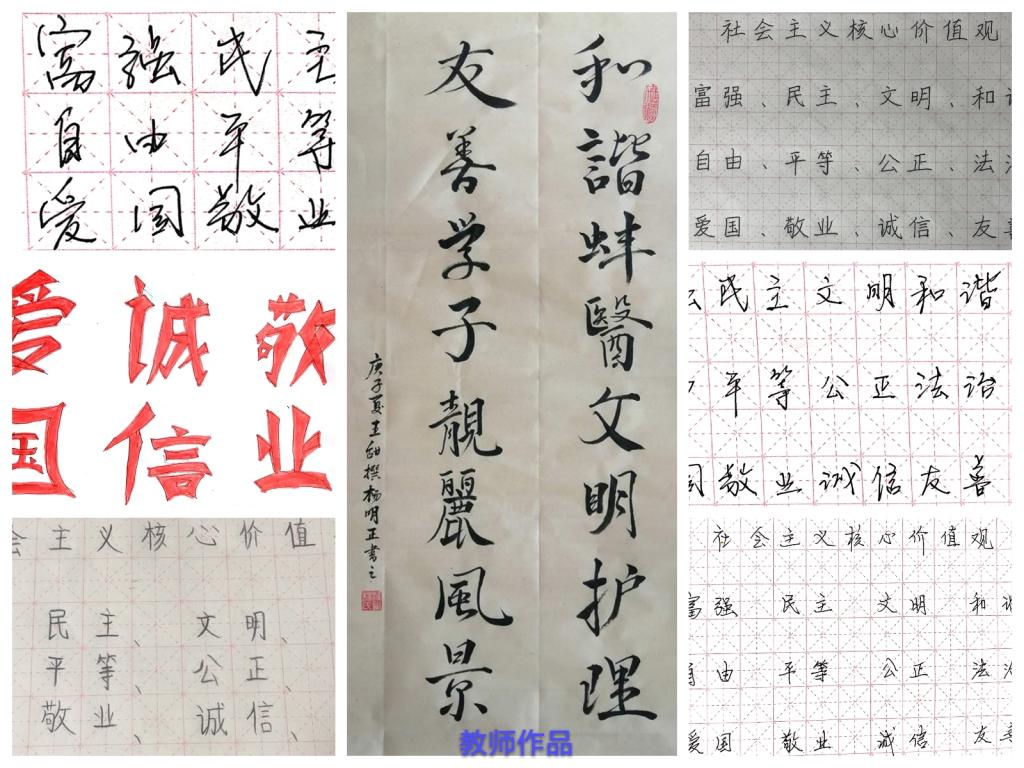 富强民主
自由平等
爱国敬业
爱诚敬
国信业
会主义核心价值
民主、文明、
平等、公正、
敬业、诚信、
和諧蚌醫文明护理
友善学子靚麗風景
庚子夏王撰杨明正書之
教师作品
社会主义核心价值观
富强、民主、文明、和
自由、平等、公正、法
爱国、敬业、诚信、友善
民主文明和谐
平等公正法治
国敬业诚信友善
社会主义核心价值观
富强 民主 文明 和
由 平等 公正 法
爱国 敬业 诚信 友善